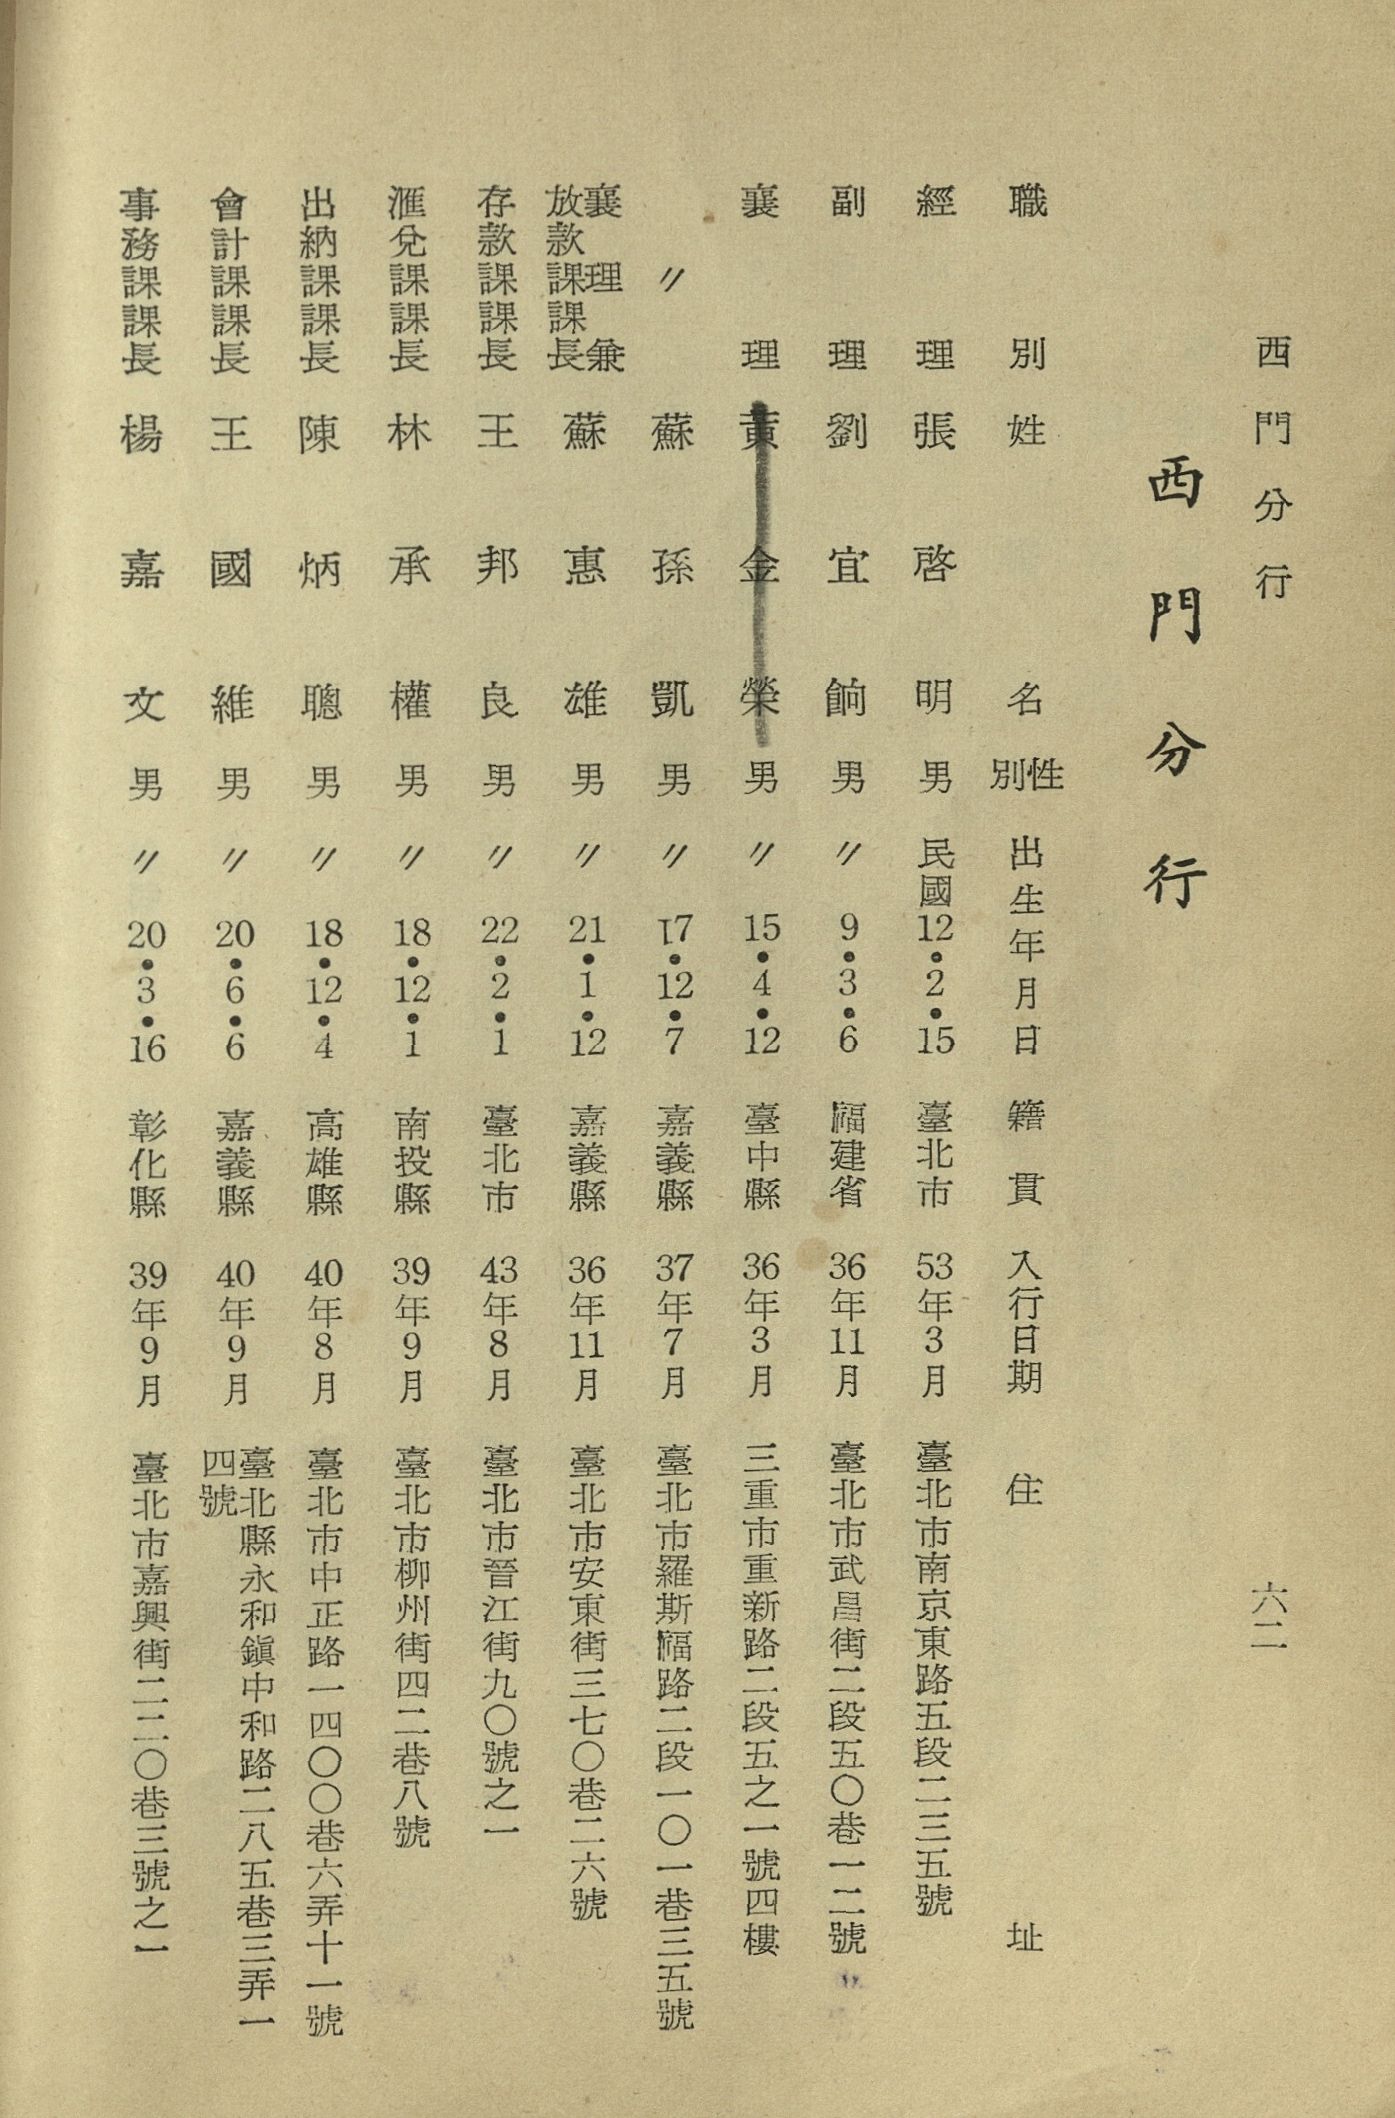 西門分行
六二
西門分行
職別 姓名 性別 出生年月日 籍貫 入行日期 住址
經理 張啓明 男 民國12•2•15 臺北市 53年3月 臺北市南京東路五段二三五號
副理 劉宜餉 男 〃9•3•6 福建省 36年11月 臺北市武昌街二段五〇巷一二號
襄理 黃金榮 男 〃15•4•12 臺中縣 36年3月 三重市重新路二段五之一號四樓
〃 蘇孫凱 男 〃17•12•7 嘉義縣 37年7月 臺北市羅斯福路二段一〇一巷三五號
襄理兼放款課課長 蘇惠雄 男 〃21•1•12 嘉義縣 36年11月 臺北市安東街三七〇巷二六號
存款課課長 王邦良 男 〃22•2•1 臺北市 43年8月 臺北市晉江街九〇號之一
滙兌課課長 林承權 男 〃18•12•1 南投縣 39年9月 臺北市柳州街四二巷八號
出納課課長 陳炳聰 男 〃18•12•4 高雄縣 40年8月 臺北市中正路一四〇〇巷六弄十一號
會計課課長 王國維 男 〃20•6•6 嘉義縣 40年9月 臺北縣永和鎭中和路二八五巷三弄一
四號
事務課課長 楊嘉文 男 〃20•3•16 彰化縣 39年9月 臺北市嘉興街二二〇巷三號之一